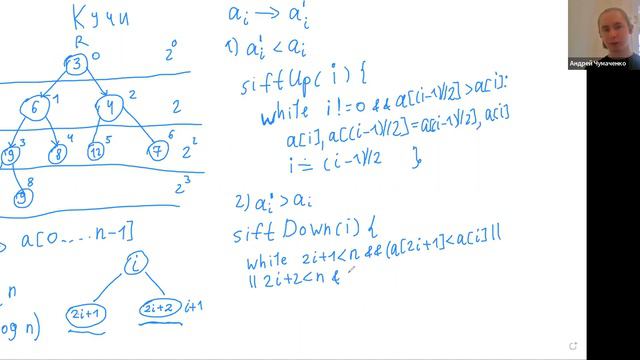 Кучи
R
3 0
2^0
6 1
4 2
2
9 3
8 4
12 5
7 6
2^2
9 8
2^3
a[0.....n-1]
i
n
2i+1
2i+2 i+1
og n)
a_i → a_i'
1) a_i' < a_i
siftUp(i) {
while i != 0 && a[(i-1)//2] > a[i]:
a[i], a[(i-1)//2] = a[(i-1)//2], a[i]
i = (i-1)//2 },
2) a_i' > a_i
siftDown(i) {
while 2i+1<n && (a[2i+1]<a[i] ||
|| 2i+2<n &
Андрей Чумаченко